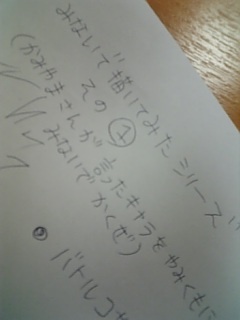 みないで描いてみたシリーズ
その①
(かみやまさんが言ったキャラをやみくもに
みないでかくぜ)
バトルコ